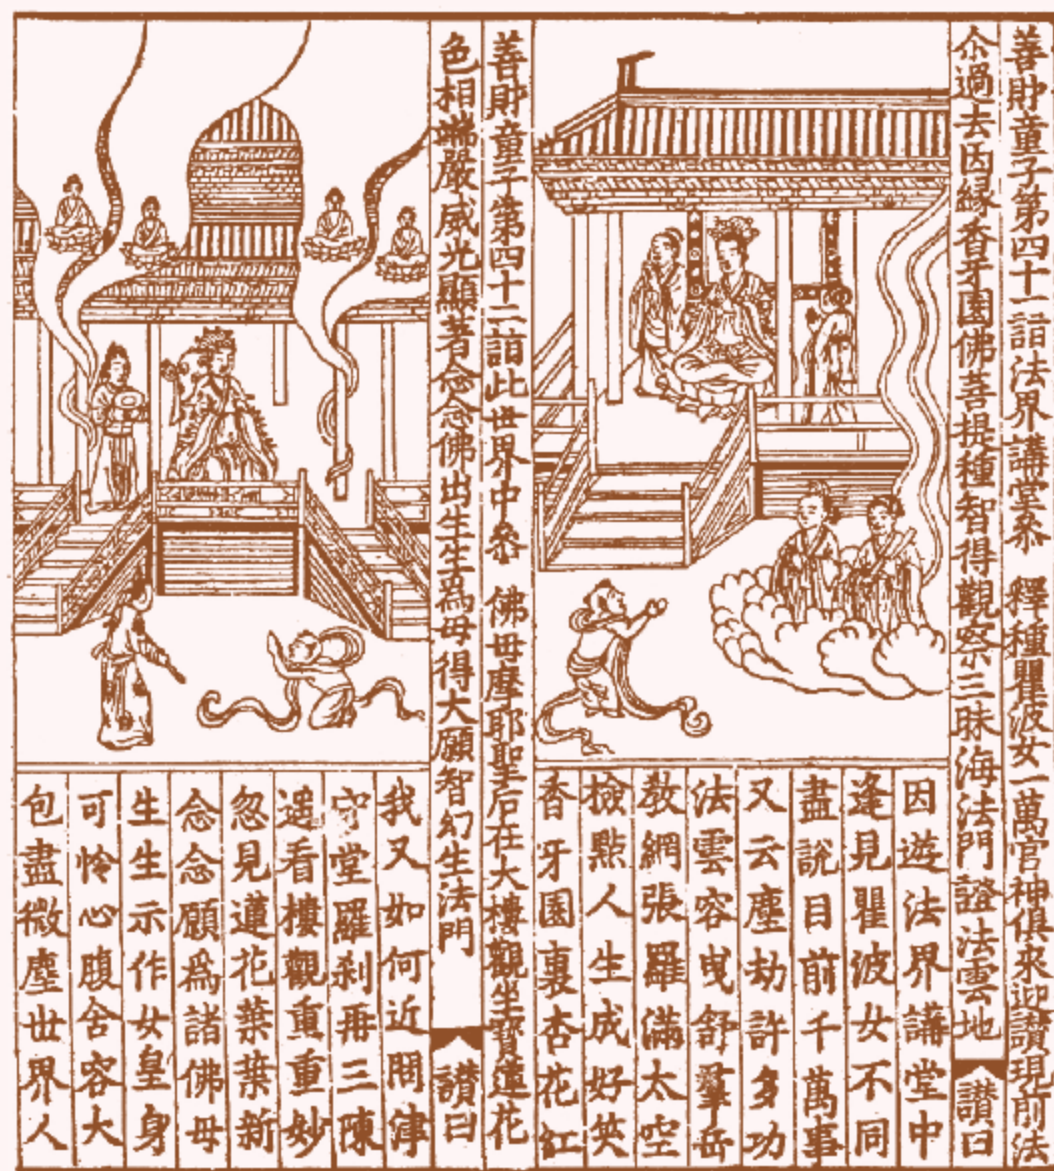 善財童子第四十一詣法界講堂叅　釋種瞿波女一萬宮神俱來迎讃現前法
尒過去因緣香牙園佛菩提種智得觀察三昧海法門證法雲地　讃曰
因遊法界講堂中
逢見瞿波女不同
盡說目前千萬事
又云塵劫許多功
法雲容曵舒羣岳
教網張羅滿太空
撿點人生成好笑
香牙園裏杏花紅
善財童子第四十二詣此世界中叅　佛母摩耶聖后在大樓觀坐寶蓮花
色相端嚴威光顯著念念佛出生生爲母得大願智幻生法門　讃曰
我又如何近問津
守堂羅刹再三陳
遥看樓觀重重妙
忽見蓮花葉葉新
念念願爲諸佛母
生生示作女皇身
可怜心腹含容大
包盡微塵世界人